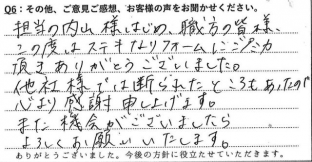 Q6:その他、ご意見ご感想、お客様の声をお聞かせください。
担当の内山様はじめ、職方の皆様
この度はステキなリフォームにご尽力
頂きありがとうございました。
他社様では断られたところもあったので
心より感謝申し上げます。
また機会がございましたら
よろしくお願いいたします。
ありがとうございました。今後の方針に役立たせていただきます。